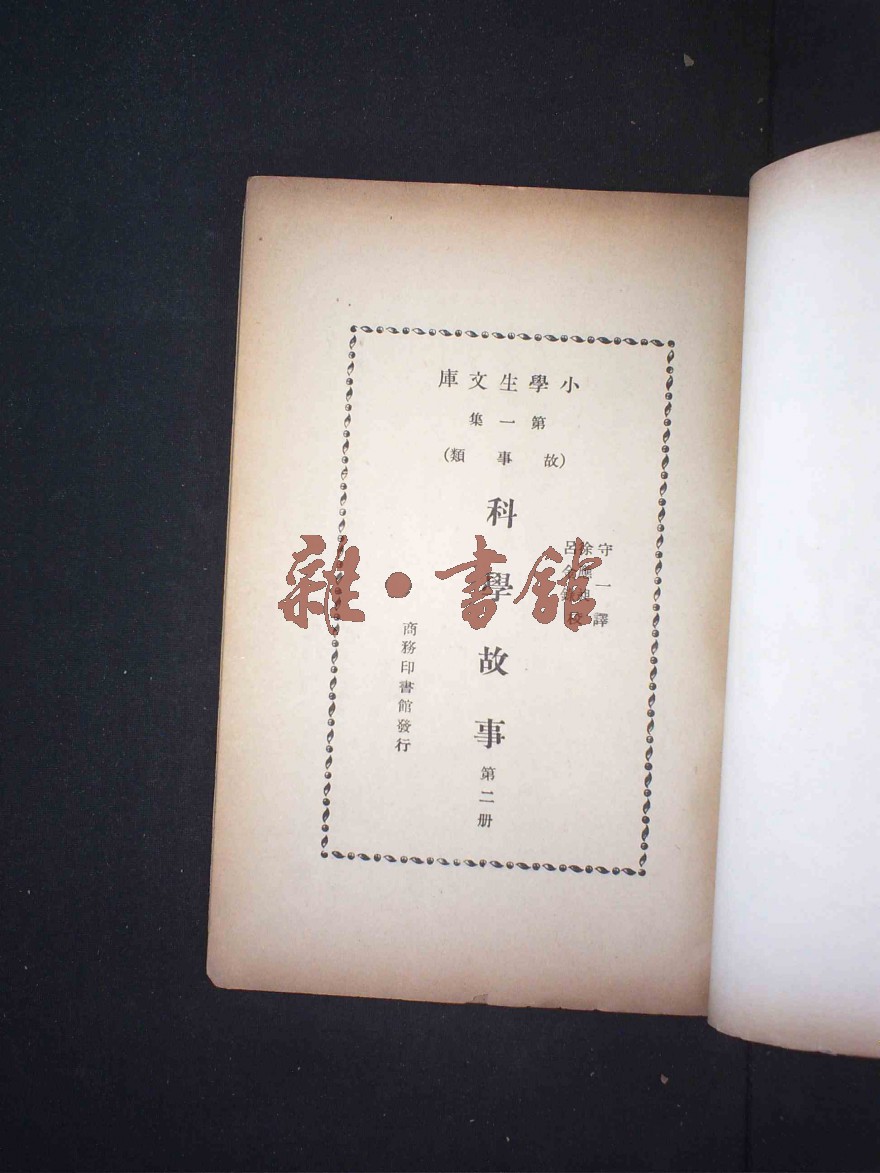 小學生文庫
第一集
(故事類)
守一譯
徐應昶
呂金錄校
科學故事 第二册
商務印書館發行
雜•書館